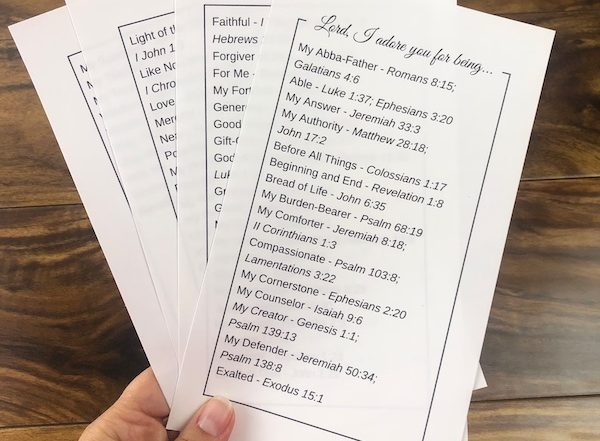 Lord, I adore you for being...
My Abba-Father - Romans 8:15;
Galatians 4:6
Able - Luke 1:37; Ephesians 3:20
My Answer - Jeremiah 33:3
My Authority - Matthew 28:18;
John 17:2
Before All Things - Colossians 1:17
Beginning and End - Revelation 1:8
Bread of Life - John 6:35
My Burden-Bearer - Psalm 68:19
My Comforter - Jeremiah 8:18;
II Corinthians 1:3
Compassionate - Psalm 103:8;
Lamentations 3:22
My Cornerstone - Ephesians 2:20
My Counselor - Isaiah 9:6
My Creator - Genesis 1:1;
Psalm 139:13
My Defender - Jeremiah 50:34;
Psalm 138:8
Exalted - Exodus 15:1
Faithful - I
Hebrews
Forgiver
For Me -
My Fort
Gener
Good
Gift-G
God
Luk
Light of th
I John 1
Like No
I Chro
Love
Mer